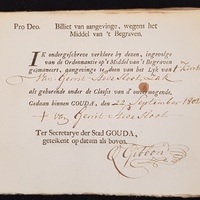 Pro Deo. Billiet van aangevinge, wegens het
Middel van 't Begraven.
IK ondergeschreve verklare by dezen, ingevolge
van de Ordonnantie op 't Middel van 't Begraven
geëmaneert, aangevinge te doen van het Lyk van 't Kint
van Gerrit
als gehorende onder de Classis van d' onvermogende.
Gedaan binnen GOUDA, den 22 September 1803
van Gerrit
Ter Secretarye der Stad GOUDA,
geteikent op datum als boven.